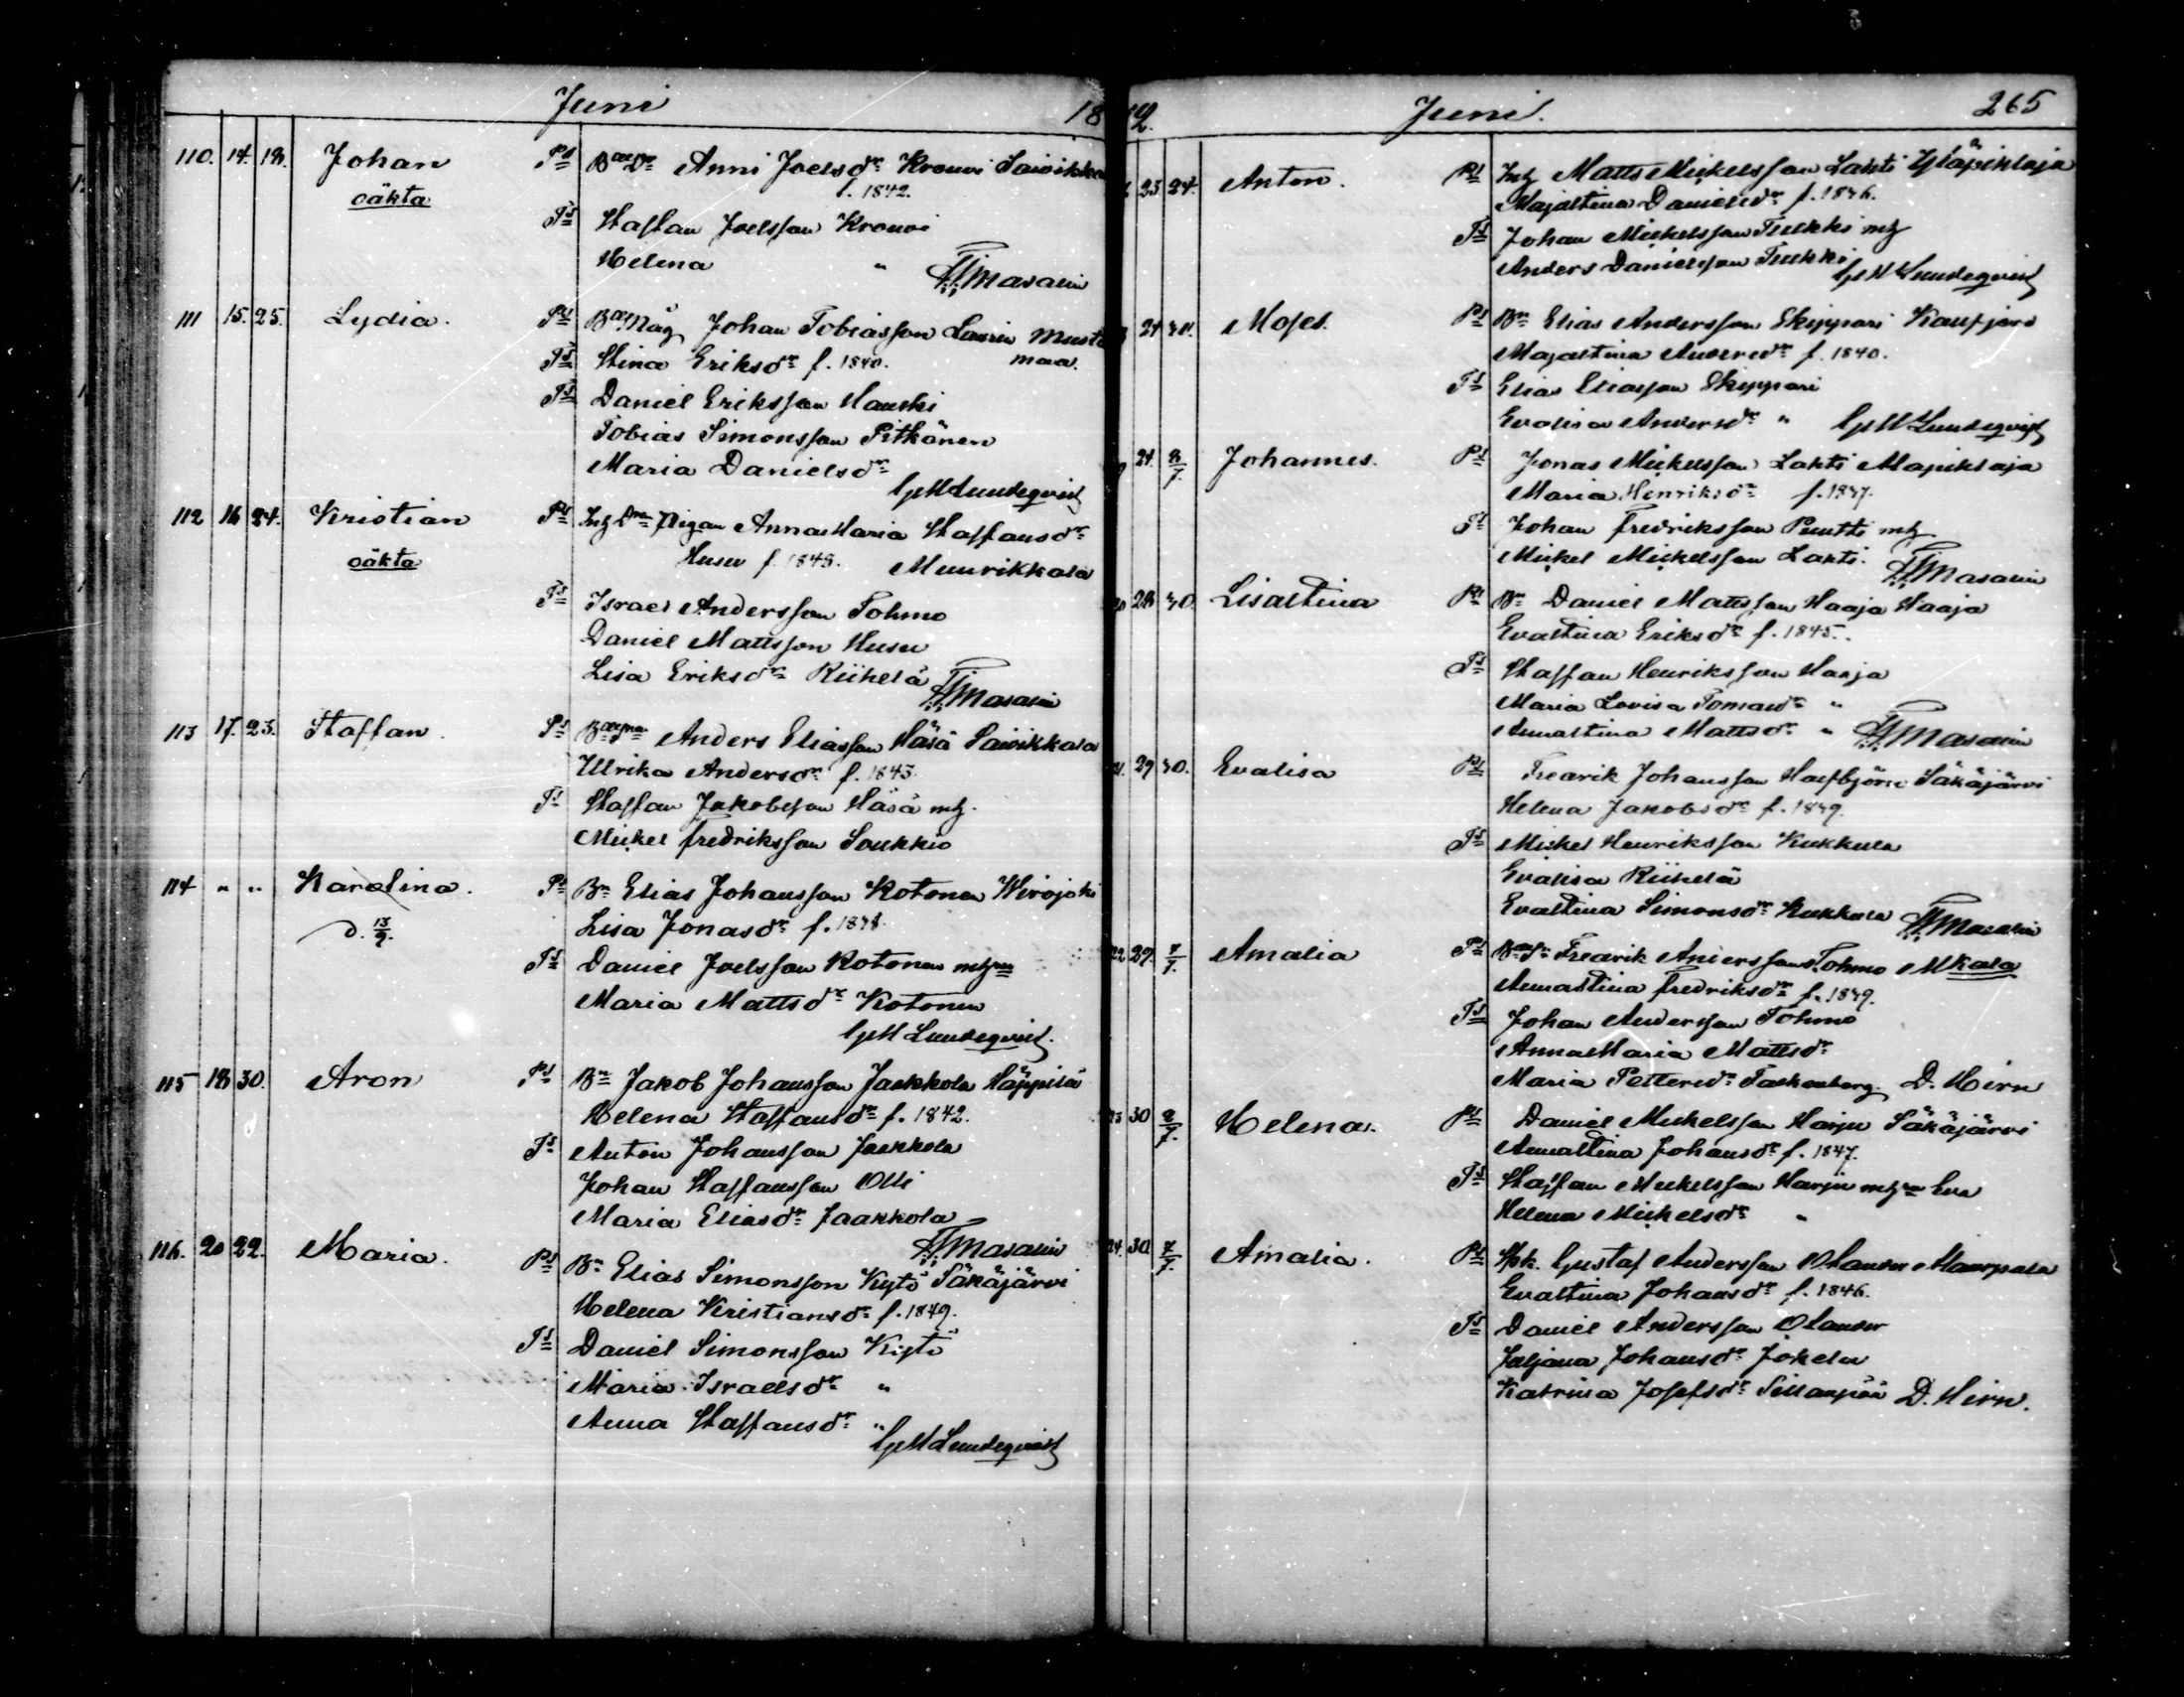 Juni 18
110. 14. 18. Johan Ps Anni Joelsdr Krouvi Saivikka
oäkta f. 1842.
Ts Staffan Joelsson Krouvi
Helena "
Masalin
111 15. 25. Lydia. Ps Måg Johan Tobiasson Lauren Musta
Stina Eriksdr f. 1840. maa.
Ts Daniel Eriksson Hanski
Tobias Simonsson Pitkänen
Maria Danielsdr
GM Lundeqvist
112 16 24. Kristian Ps Pigan Anna Maria Staffansdr
oäkta Husu f. 1845. Muurikkala
Ts Israel Andersson Tohmo
Daniel Mattsson Husu
Lisa Eriksdr Riihelä
Masalin
113 17. 23. Staffan. Ps Anders Eliasson Häsä Saivikkala
Ulrika Andersdr f. 1843.
Ts Staffan Jakobsson Häsä mh.
Mickel Fredriksson Soukkio
114 " " Karolina. Ps Bn Elias Johansson Kotonen Wirojoki
d. 13/9. Lisa Jonasdr f. 1848.
Ts Daniel Joelsson Kotonen
Maria Mattsdr Kotonen
GM Lundeqvist.
115 18 30. Aron Ps Bn Jakob Johansson Jaakkola Häppilä
Helena Staffansdr f. 1842.
Ts Anton Johansson Jaakkola
Johan Staffansson Olli
Maria Eliasdr Jaakkola
Masalin
116. 20 22. Maria. Ps Bn Elias Simonsson Kytö Säkäjärvi
Helena Kristiansdr f. 1849.
Ts Daniel Simonsson Kytö
Maria Israelsdr "
Anna Staffansdr "
GM Lundeqvist
72. Juni. 265
23 24. Anton. Ps Matts Mickelsson Lahti Yläpihlaja
Majastina Danielsdr f. 1846.
Ts Johan Mickelsson Tulkki mh
Anders Danielsson Tulkki
GM Lundeqvist
24 30. Moses. Ps Bn Elias Andersson Skippari Kansjärv
Majastina Andersdr f. 1840.
Ts Elias Eliasson Skippari
Evalisa Andersdr " GM Lundeqvist
24. 8/7. Johannes. Ps Jonas Mickelsson Lahti Alapihlaja
Maria Henriksdr f. 1847.
Ts Johan Fredriksson Puutti mh
Mickel Mickelsson Lahti.
Masalin
20 28 30 Lisastina Ps Bn Daniel Mattsson Haaja Haaja
Evastina Eriksdr f. 1845.
Ts Staffan Henriksson Haaja
Maria Lovisa Tomasdr "
Annastina Mattsdr " Masalin
21. 29 30. Evalisa Ps Fredrik Johansson Säkäjärvi
Helena Jakobsdr f. 1849.
Ts Mickel Henriksson Kukkula
Evalisa Riihelä
Evastina Simonsdr Kukkula Masalin
22 29. 7/7. Amalia Ps Fredrik Andersson Tohmo Mkala
Annastina Fredriksdr f. 1849.
Ts Johan Andersson Tohmo
Anna Maria Mattsdr
Maria Pettersdr Taskenberg. D. Hirn
23 30 2/7. Helena. Ps Daniel Mickelsson Harju Säkäjärvi
Annastina Johansdr f. 1847.
Ts Staffan Mickelsson Harju Eva
Helena Mickelsdr "
24. 30. 7/7. Amalia. Ps Gustaf Andersson Olander
Evastina Johansdr f. 1846.
Ts Daniel Andersson Olander
Juljana Johansdr Jokela
Katrina Josefsdr Sillanpää D. Hirn.